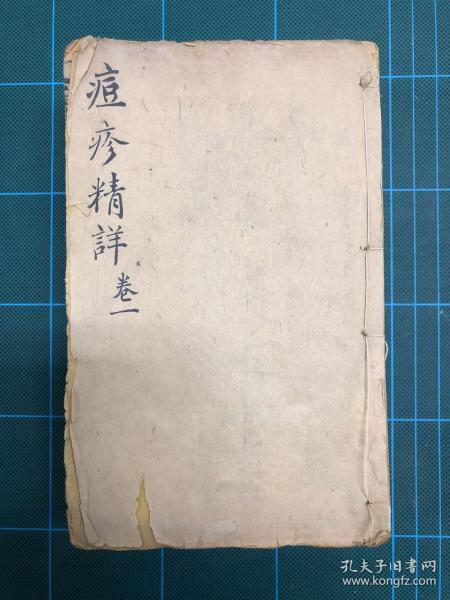 痘疹精詳
卷一
孔夫子旧书网
www.kongfz.com